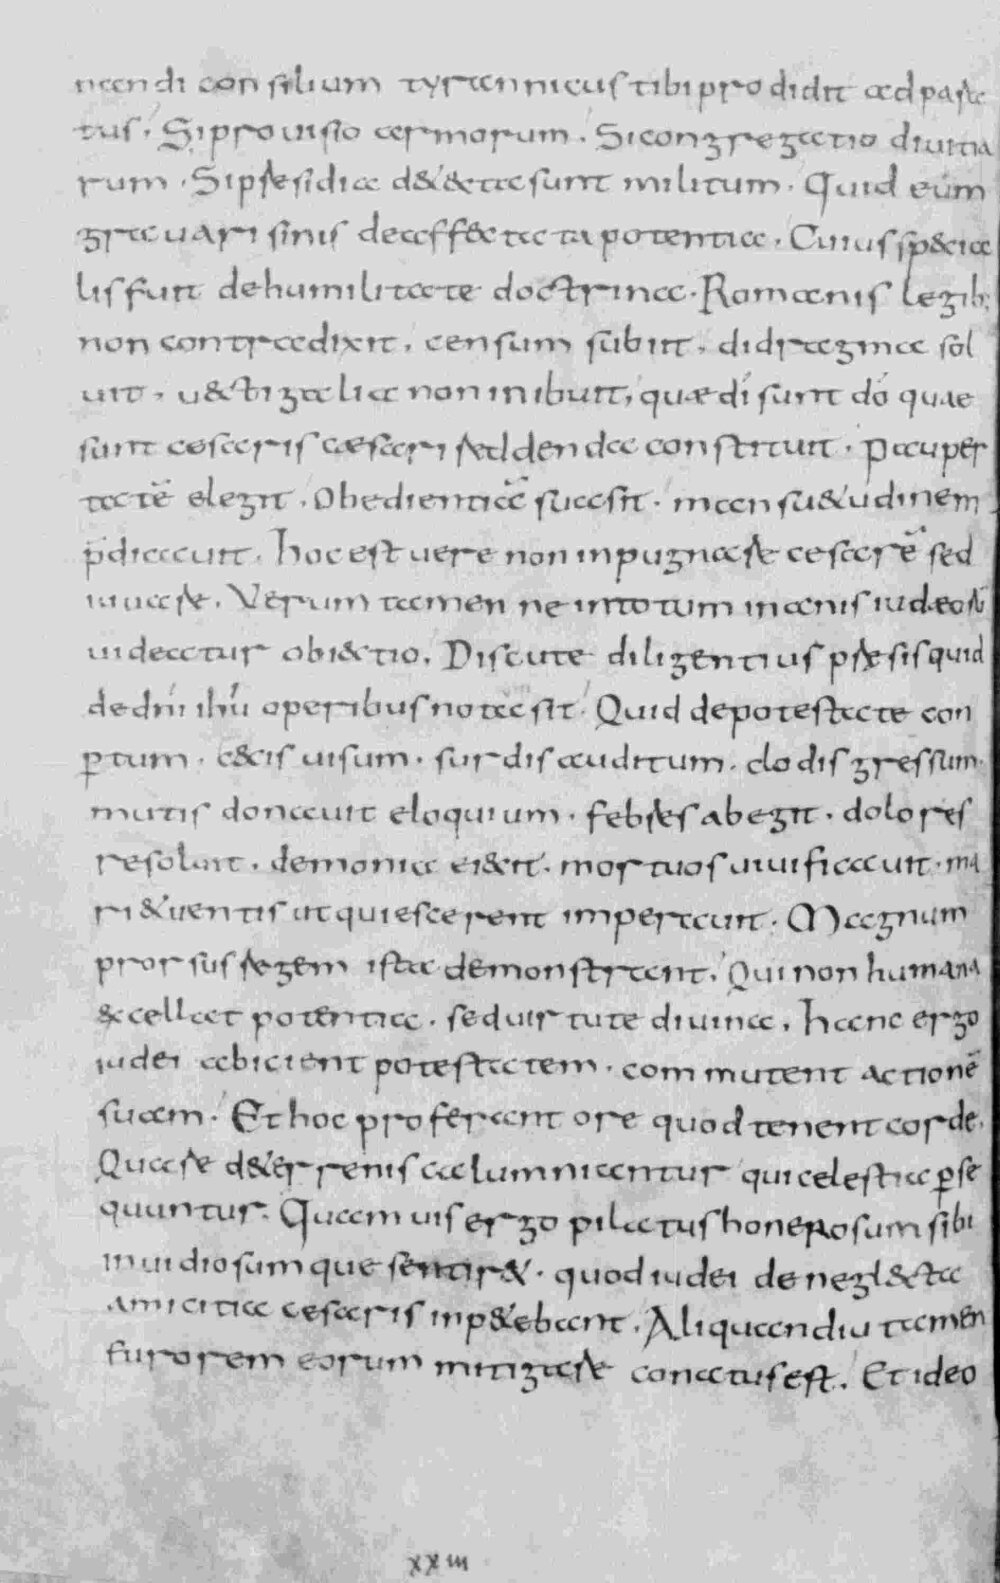 nandi consilium tyrannicus tibi prodidit adpara
tus. Si prouisio armorum. Si congregatio diuitia
rum. Si presidia det&ta sunt militum. Quid eum
grauari sinis de affectata potentia. Cuius sp&cia
lis fuit de humilitate doctrina. Romanis legib;
non contradixit. censum subiit. didragma sol
uit. u&tigalia non inibuit, quæ dī sunt dō quae
sunt cesaris cæsari reddenda constituit. Pauper
tatē elegit. Obedientiā suasit. mansu&udinem
p̄dicauit. Hoc est uere non inpugnare cesarē sed
iuuare. Verum tamen ne in totum inanis iudæorū
uideatur obi&tio. Discute diligentius presis quid
de dn̄i ihū operibus nota sit. Quid de potestate con
ꝑtum. c&cis uisum. surdis auditum. clodis gressum.
mutis donauit eloquium. febres abegit. dolores
resoluit. demonia ei&it. mortuos uiuificauit. ma
ri & uentis ut quiescerent imperauit. Magnum
prorsus regem ista demonstrant. Qui non humana
& cellat potentia. sed uirtute diuina. Hanc ergo
iudei abicient potestatem. commutent actionē
suam. Et hoc proferant ore quod tenent corde.
Quare d& errenis calumniantur qui celestia ꝑse
quuntur. Quam uis ergo pilatus honerosum sibi
inuidiosumque sentir&. quod iudei de negl&ta
amicitia cesaris inp&ebant. Aliquandiu tamen
furorem eorum mitigare conatus est. Et ideo
xxiii